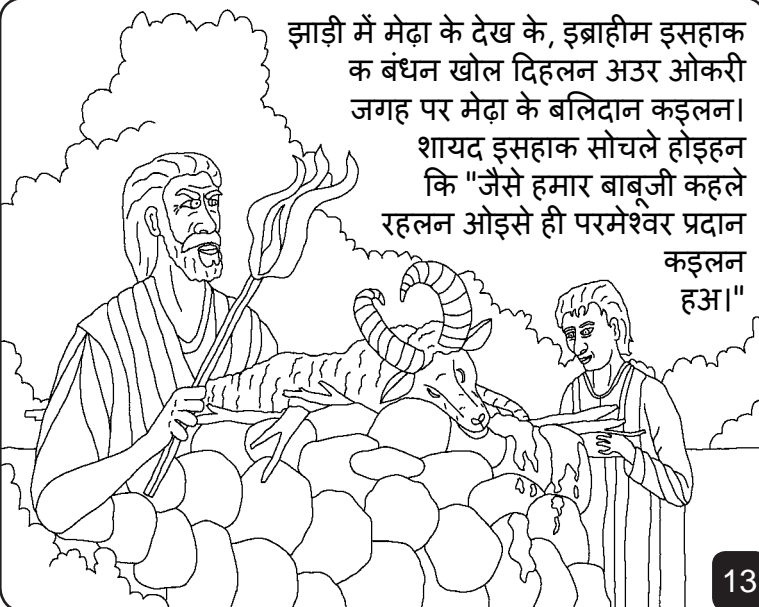 झाड़ी में मेढ़ा के देख के, इब्राहीम इसहाक
क बंधन खोल दिहलन अउर ओकरी
जगह पर मेढ़ा के बलिदान कइलन।
शायद इसहाक सोचले होइहन
कि "जैसे हमार बाबूजी कहले
रहलन ओइसे ही परमेश्वर प्रदान
कइलन
हअ।"
13